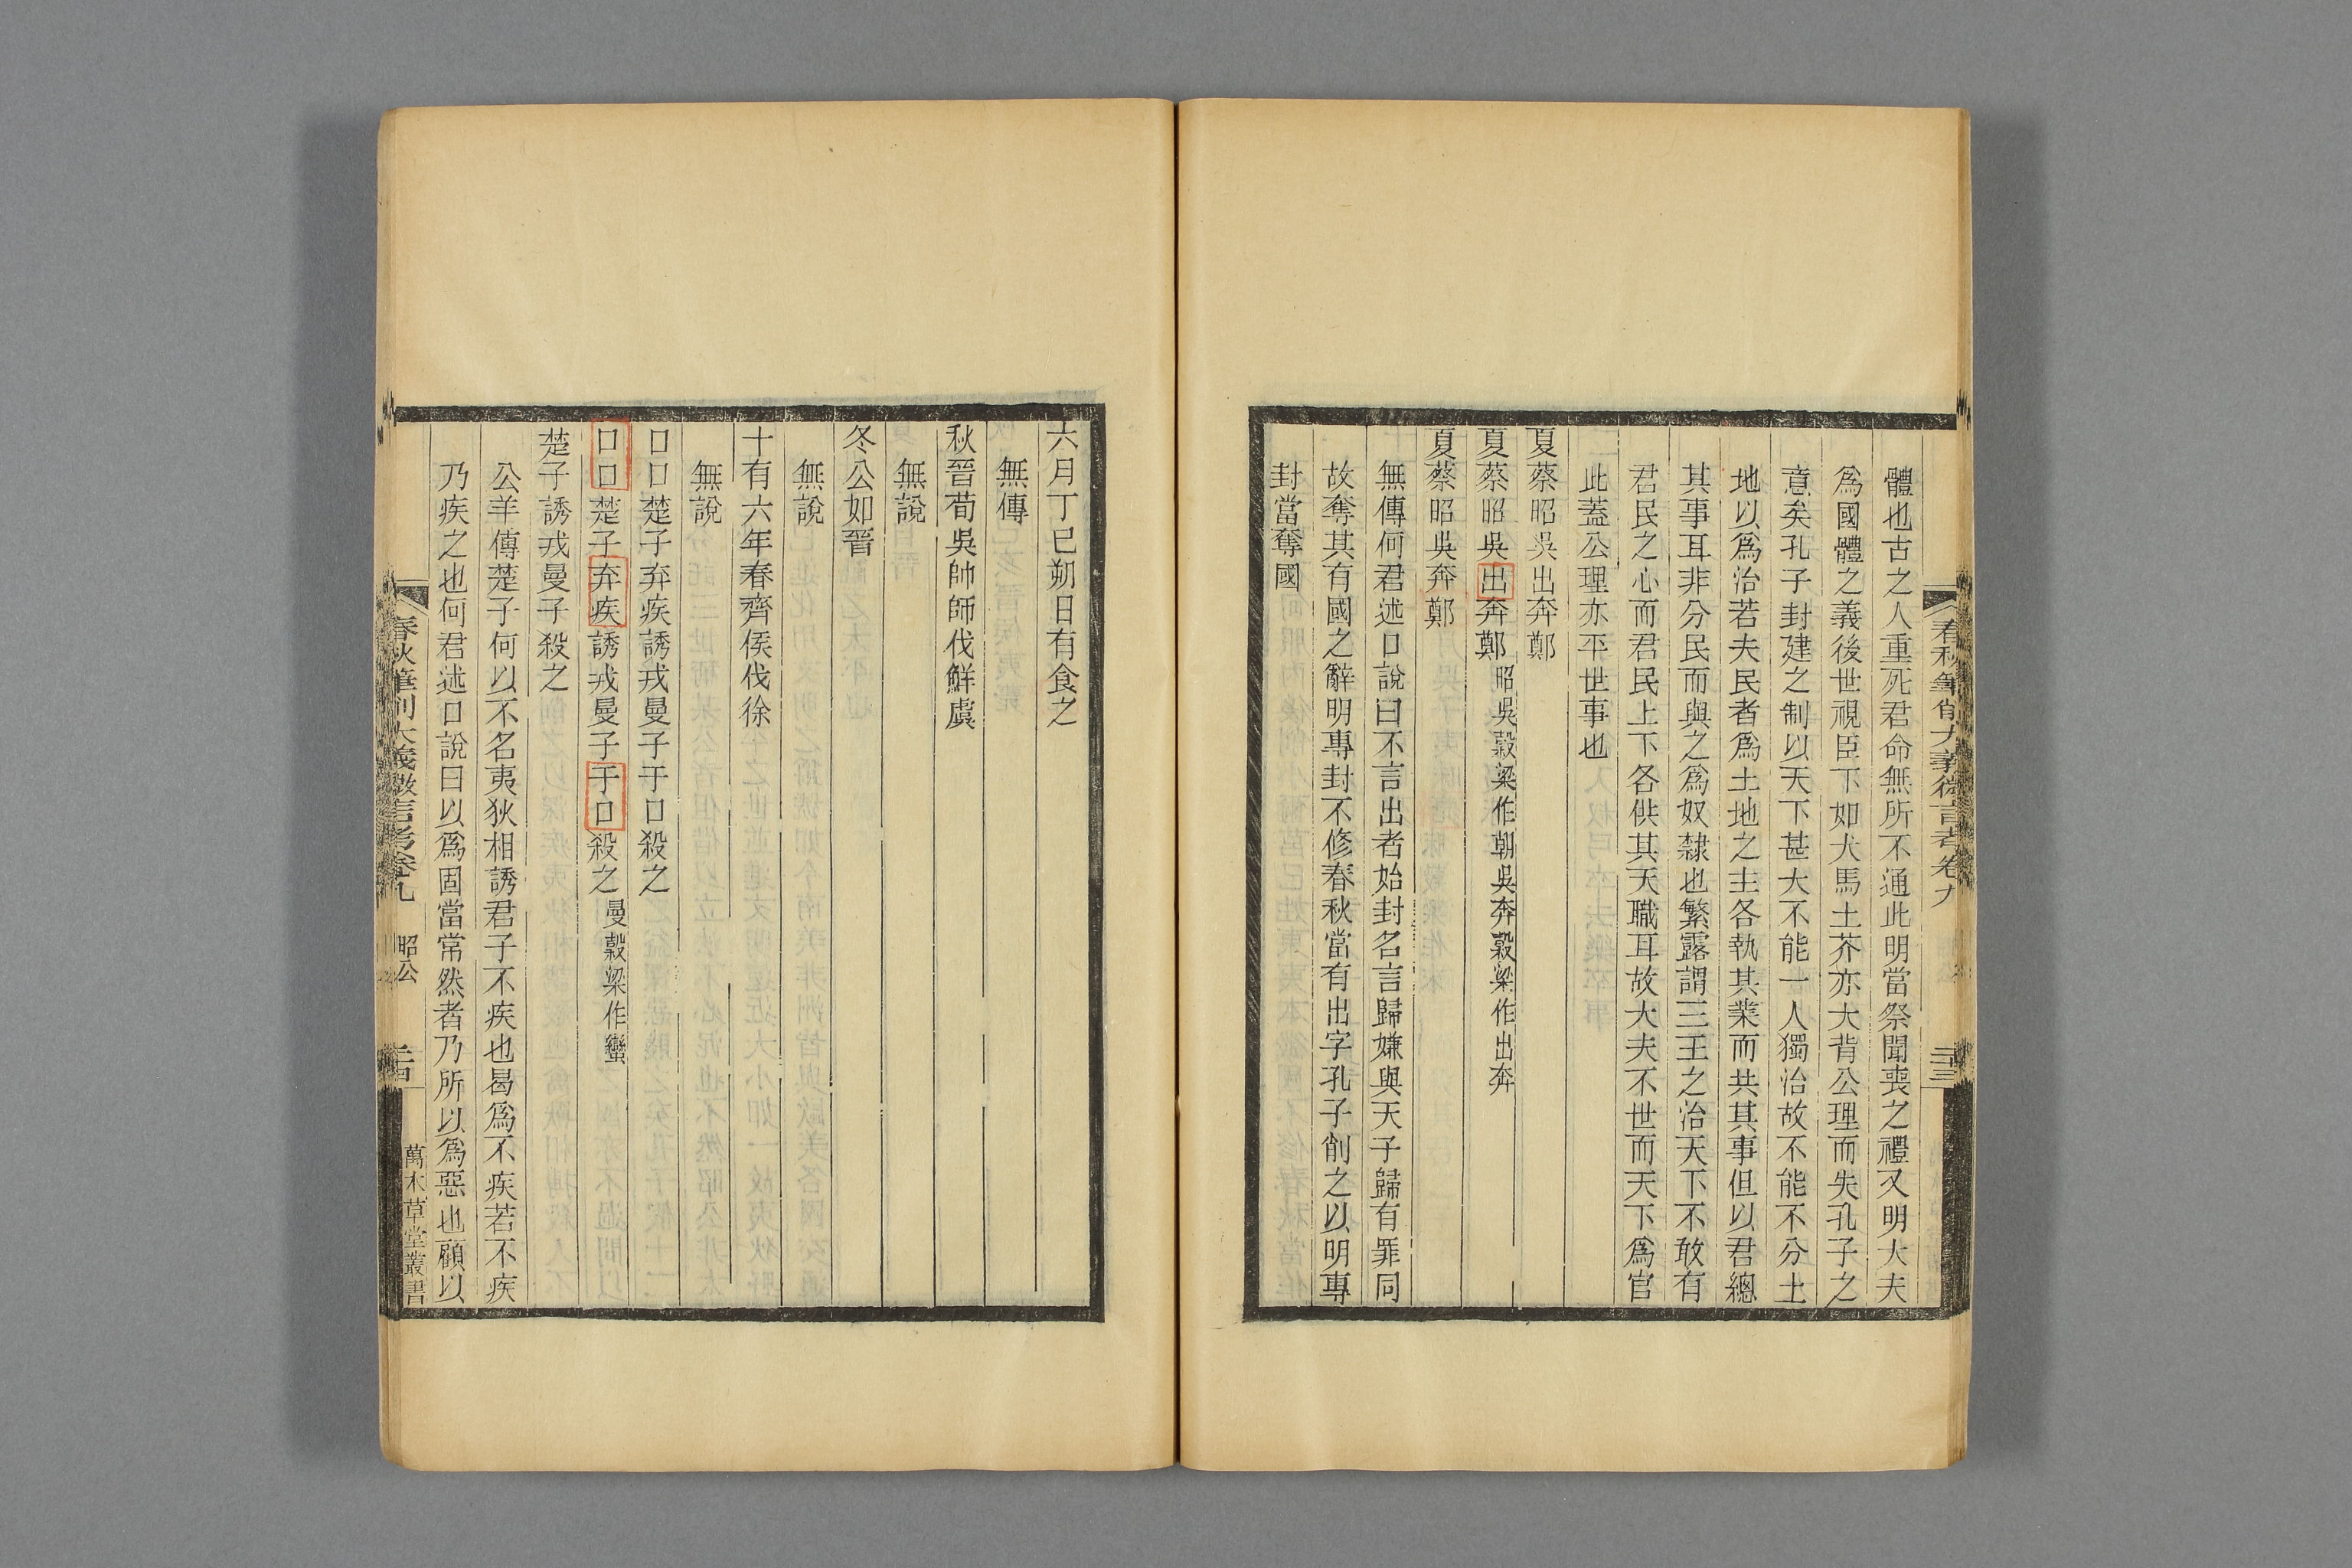 春秋筆削大義微言考卷九
二十三
體也古之人重死君命無所不通此明當祭聞喪之禮又明大夫
爲國體之義後世視臣下如犬馬土芥亦大背公理而失孔子之
意矣孔子封建之制以天下甚大不能一人獨治故不能不分土
地以爲治若夫民者爲土地之主各執其業而共其事但以君總
其事耳非分民而與之爲奴隸也繁露謂三王之治天下不敢有
君民之心而君民上下各供其天職耳故大夫不世而天下爲官
此蓋公理亦平世事也
夏蔡昭吳出奔鄭
夏蔡昭吳出奔鄭昭吳穀梁作朝吳奔穀梁作出奔
夏蔡昭吳奔鄭
無傳何君述口說曰不言出者始封名言歸嫌與天子歸有罪同
故奪其有國之辭明專封不修春秋當有出字孔子削之以明專
封當奪國
六月丁巳朔日有食之
無傳
秋晉荀吳帥師伐鮮虞
無說
冬公如晉
無說
十有六年春齊侯伐徐
無說
口口楚子弃疾誘戎曼子于口殺之
口口楚子弃疾誘戎曼子于口殺之曼穀梁作蠻
楚子誘戎曼子殺之
公羊傳楚子何以不名夷狄相誘君子不疾也曷爲不疾若不疾
乃疾之也何君述口說曰以爲固當常然者乃所以爲惡也顧以
春秋筆削大義微言考卷九
昭公
二十四
萬木草堂叢書